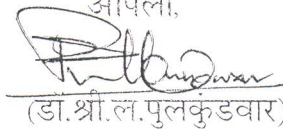 आपला,
(डॉ.श्री.ल.पुलकुंडवार)